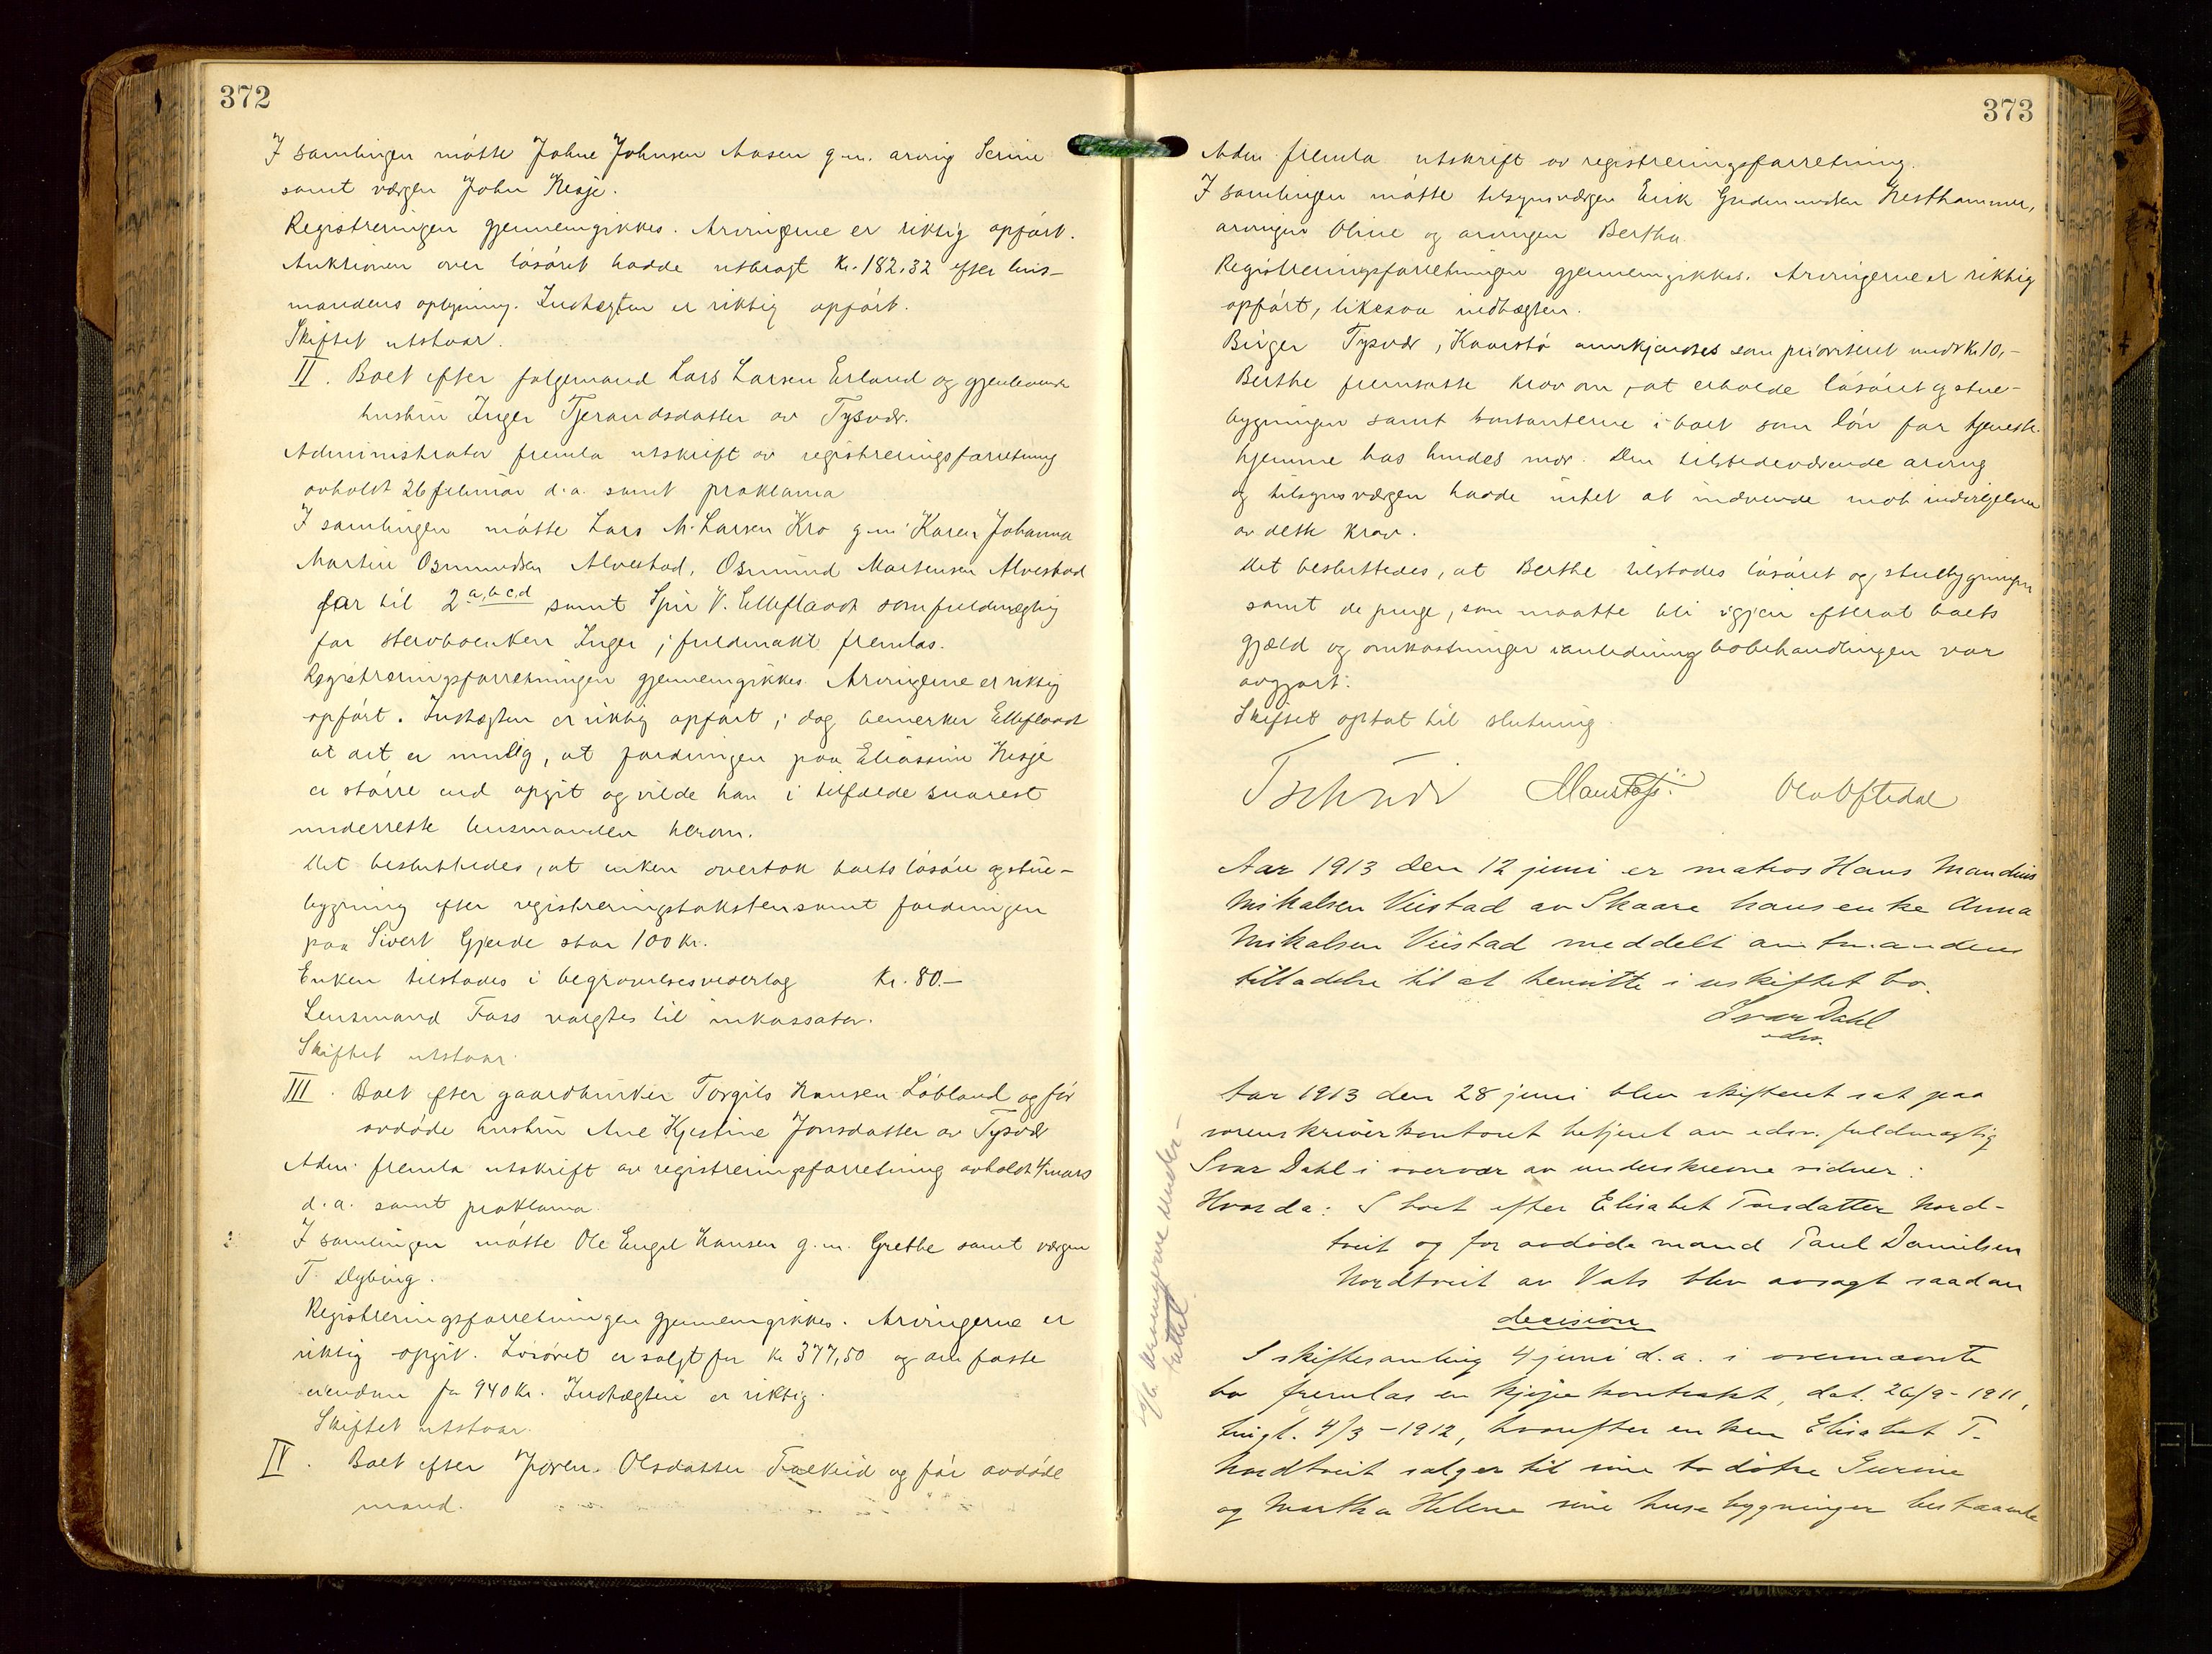 372
I samlingen møtte Johne Johnsen Aasen g.m. arving Serine
samt værgen John Nesje.
Registreringen gjennemgikkes. Arvingerne er riktig opført.
Auktionen over løsøret hadde utbragt Kr. 182,32 efter lens-
mandens oplysning. Indtægten er riktig opført.
Skiftet utstaar.
II. Boet efter folgemand Lars Larsen Erland og gjenlevende
hustru Inger Tjerandsdatter av Tysvær.
Administrator fremla utskrift av registreringsforretning
avholdt 26 februar d.a. samt proklama
I samlingen møtte Lars M. Larsen Kro g.m. Karen Johanna
Martin Osmundsen Alvestad, Osmund Martensen Alvestad
far til 2 a,b,c,d samt Spir V. Elleflaadt som fuldmægtig
for stervboenken Inger; fuldmakt fremlas.
Registreringsforretningen gjennemgikkes. Arvingerne er riktig
opført. Indtægten er riktig opført; dog bemerker Elleflaadt
at det er mulig, at fordringen paa Eliassine Nesje
er større end opgit og vilde han i tilfælde snarest
underrette lensmanden herom.
Det besluttedes, at enken overtok boets løsøre og stue-
bygning efter registreringstaksten samt fordringen
paa Sivert Gjerde stor 100 kr.
Enken tilstodes i begravelsesvederlag Kr. 80.—
Lensmand Fass valgtes til inkassator.
Skiftet utstaar.
III. Boet efter gaardbruker Torgils Hansen Løbland og før
avdøde hustru Ane Kjestine Jonsdatter av Tysvær
Adm. fremla utskrift av registreringsforretning avholdt 4/mars
d.a. samt proklama.
I samlingen møtte Ole Engel Hansen g.m. Grethe samt værgen
T. Dybing.
Registreringsforretningen gjennemgikkes. Arvingerne er
riktig opgit. Løsøret er solgt for kr 377,50 og den faste
eiendom for 940 kr. Indtægten er riktig.
Skiftet utstaar.
IV. Boet efter Joren Olsdatter Falkeid og før avdøde
mand.
373
Adm. fremla utskrift av registreringsforretning.
I samlingen møtte tilsynsværgen Erik Gudmundsen Nesthammer,
arvingen Oline og arvingen Bertha.
Registreringsforretningen gjennemgikkes. Arvingerne er riktig
opført, likesaa indtægten.
Birger Tysvær, Kaarstø anerkjendtes som prioritert med kr 10,-
Berthe fremsatte krav om, at erholde løsøret og stue-
bygningen samt kontanterne i boet som løn for tjeneste
hjemme hos hendes mor. Den tilstedeværende arving
og tilsynsværgen hadde intet at indvende mot indvilgelsen
av dette krav.
Det besluttedes, at Berthe tilstodes løsøret og stuebygningen
samt de penge, som maatte bli igjen efterat boets
gjæld og omkostninger i anledning bobehandlingen var
avgjort.
Skiftet optat til slutning.
Tschudi Olav Oftedal
Aar 1913 den 12 juni er matros Hans Mandius
Mikalsen Viistad av Skaare hans enke Anna
Mikalsen Viistad meddelt amtmandens
tilladelse til at hensitte i uskiftet bo.
Ivar Dahl
edsv.
Aar 1913 den 28 juni blev skifteret sat paa
sorenskriverkontoret betjent av edsv. fuldmægtig
Ivar Dahl i overvær av underskrevne vidner.
Hvorda: I boet efter Elisabet Torsdatter Nord-
tveit og før avdøde mand Paul Danielsen
Nordtveit av Vats blev avsagt saadan
decision
I skiftesamling 4 juni d.a. i ovennævnte
bo fremlas en kjøpekontrakt, dat. 26/9-1911,
tingl. 4/3-1912, hvorefter enken Elisabet T.
Nordtveit sælger til sine to døtre Gurine
og Martha Helene sine husebygninger bestaaende
arvingerne under-
rettet.